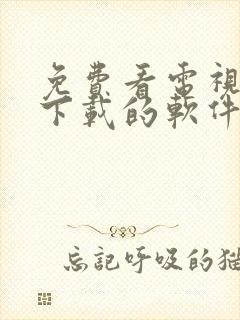 免費看電視
下載的軟件
忘記呼吸的猫